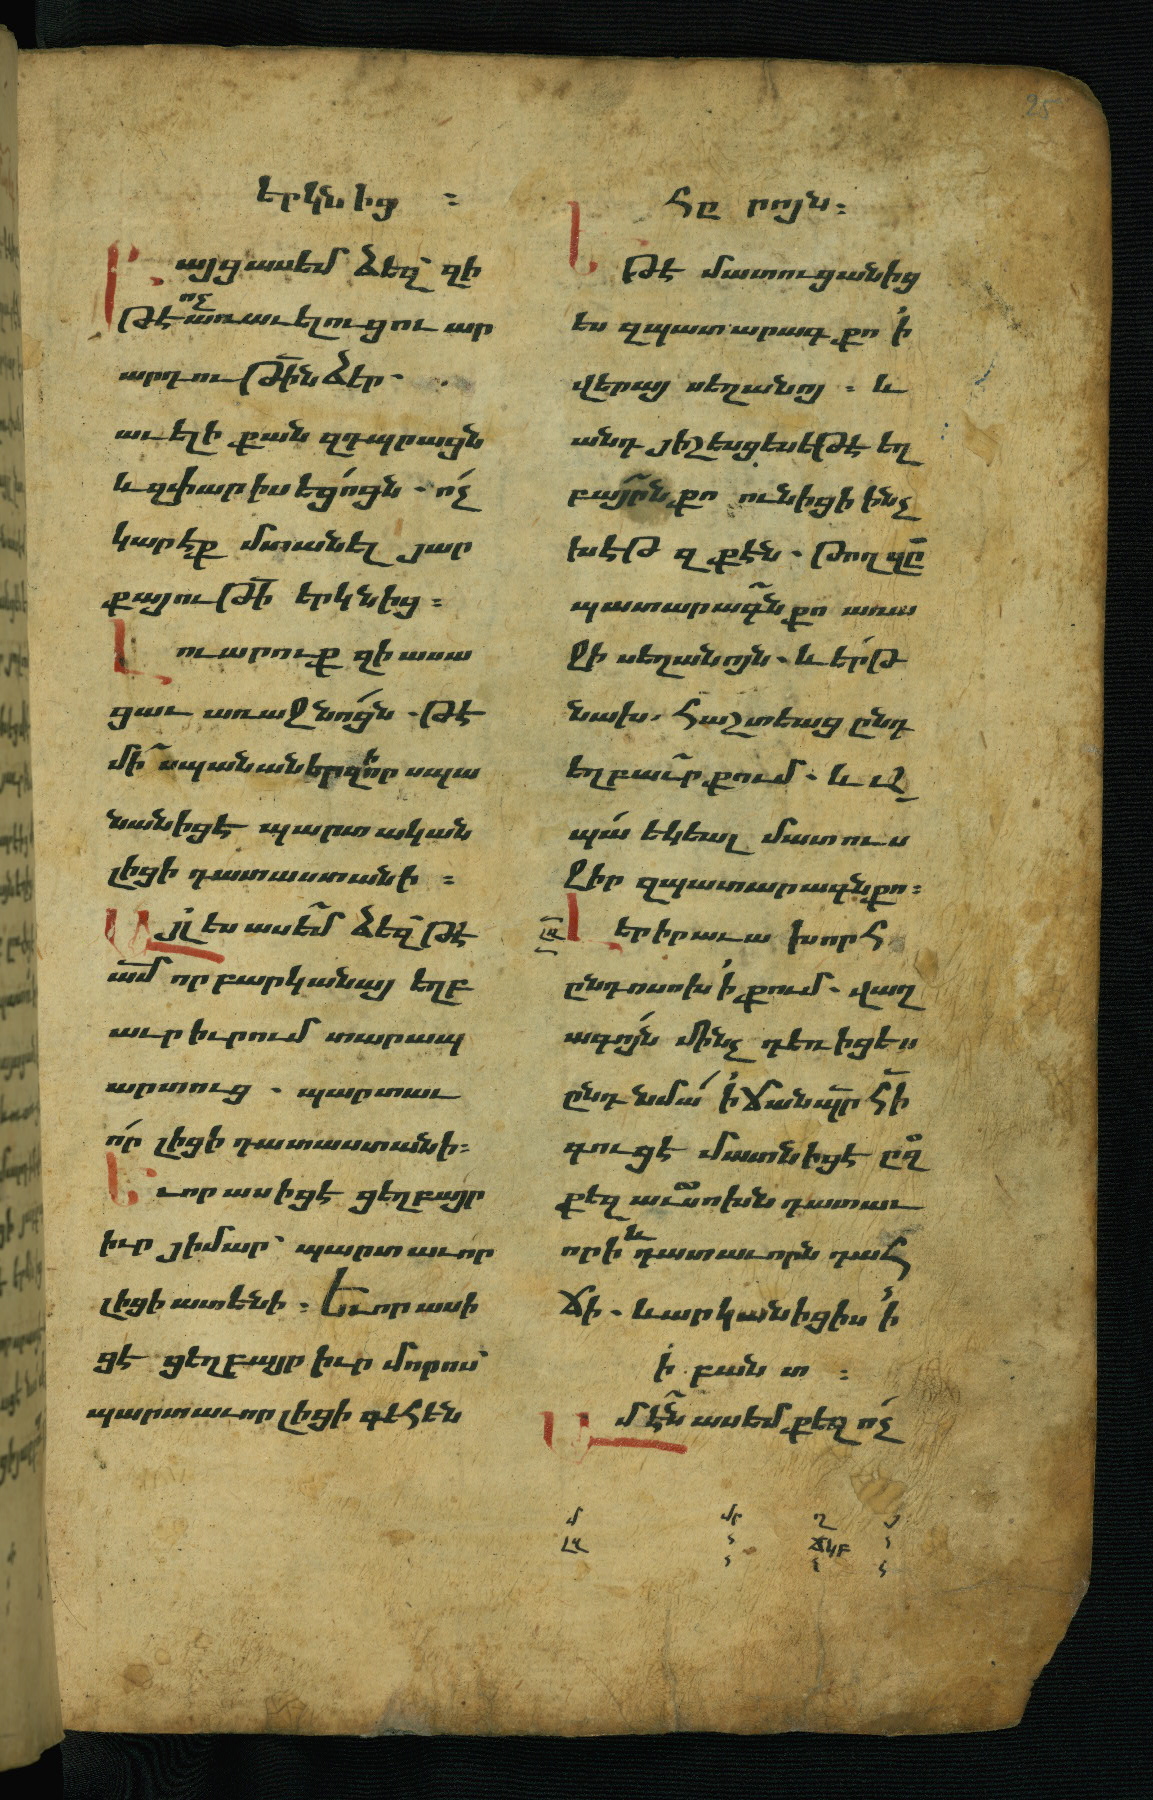 երկնից ։
Բայց ասեմ ձեզ՝ զի
թէ ոչ առաւելուցու ար
արդութի՟ն ձեր՝
աւելի քան զդպրացն
և զփարիսեցո՛ցն · ո՛չ
կարէք մտանել յար
քայութի՟ երկնից ։
Լուարուք զի ասա
ցաւ առաջնո՛ցն · թէ
մի՛ սպանաներ զի որ սպա
նանիցէ պարտական
լիցի դատաստանի ։
Այլ ես ասեմ ձեզ՝ թէ
ամ՟ որ բարկանայ եղբ
աւր իւրում տարապ
արտուց · պարտաւ
ո՛ր լիցի դատաստանի ։
Եւ որ ասիցէ ցեղբայր
իւր յիմար՝ պարտաւոր
լիցի ատենի ։ Եւ որ ասի
ցէ ցեղբայր իւր մորոս՝
պարտաւոր լիցի գեհեն
հը րոյն ։
Եթէ մատուցանիցց
ես զպատարագ քո ի՛
վերայ սեղանոյ ։ և
անդ յիշեսցես եթէ եղ
բայրն քո ունիցի ինչ
խէթ զքէն · թող զը՟
պատարագն քո առա
ջի սեղանոյն · և ե՛րթ
նախ · հաշտեաց ընդ
եղբաւր քում · և ա՟
պա՛ եկեալ մատուս
ջիր զպատարագն քո ։
լգ՟ Լեր իրաւախորհ
ընդ ոսոխի՛ քում · վաղ
ագո՛յն մինչ դեռ իցես
ընդ նմա՛ ի՛ ճանապր՟հի՟
գուցէ մատնիցէ ըզ
քեզ աւսոխն դատաւ
որի և դատաւորն դահ
ճի · և արկանիցիս ի՛
ի՛ բանտ ։
Ամէն՟ ասեմ քեզ ո՛չ
մ մր ղ յ
լգ ճկբ